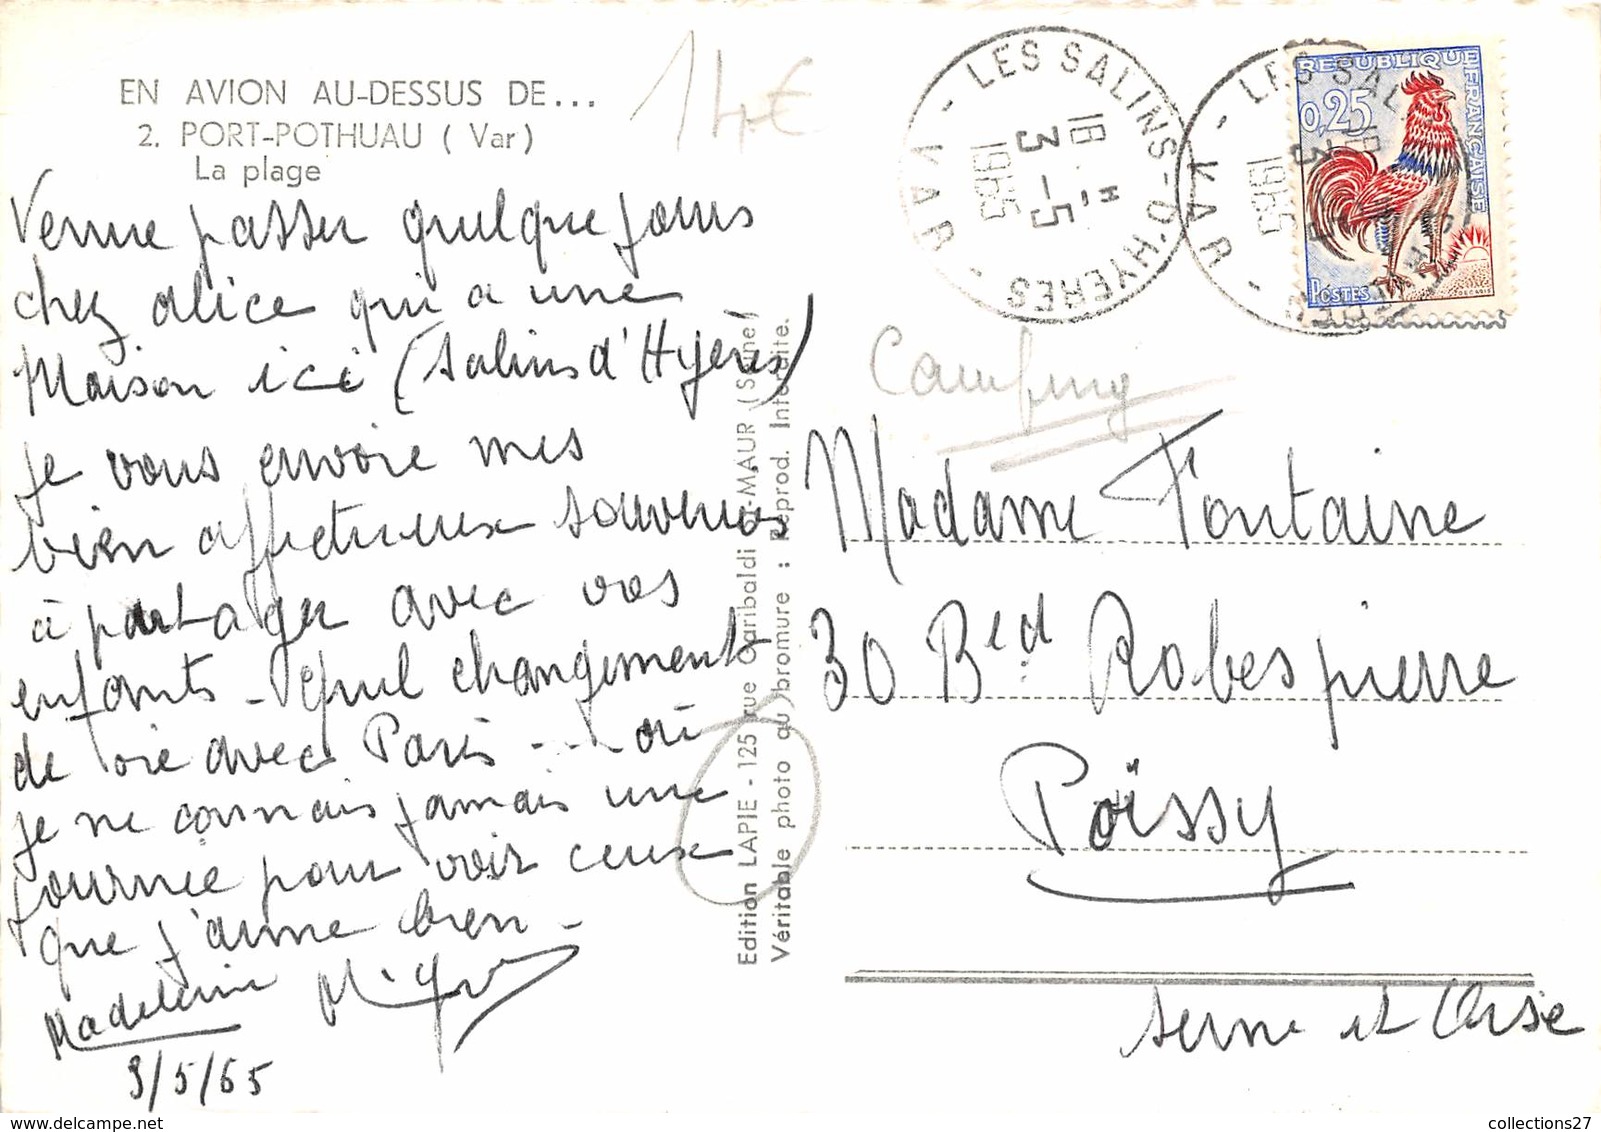 EN AVION AU-DESSUS DE...
2. PORT-POTHUAU (Var)
La plage
14€
Venue passer quelque jours
chez alice qui a une
Maison ici (Salins d'Hyères)
je vous envoie mes
bien affectueux souvenirs
à partager avec vos
enfants - Quel changement
de vie avec Paris --- où
je ne connais jamais une
journée pour voir ceux
que j'aime bien -
Madeleine
3/5/65
Edition LAPIE - 125 rue Garibaldi ST-MAUR (Seine)
Véritable photo au bromure : Reprod. Interdite.
LES SALINS-D'HYERES - VAR -
18 H
3 -5
1965
LES SAL - VAR -
1965
REPUBLIQUE FRANÇAISE
0,25
POSTES
DECARIS
Camping
Madame Fontaine
30 Bed Robespierre
Poïssy
Seine et Oise
collections27